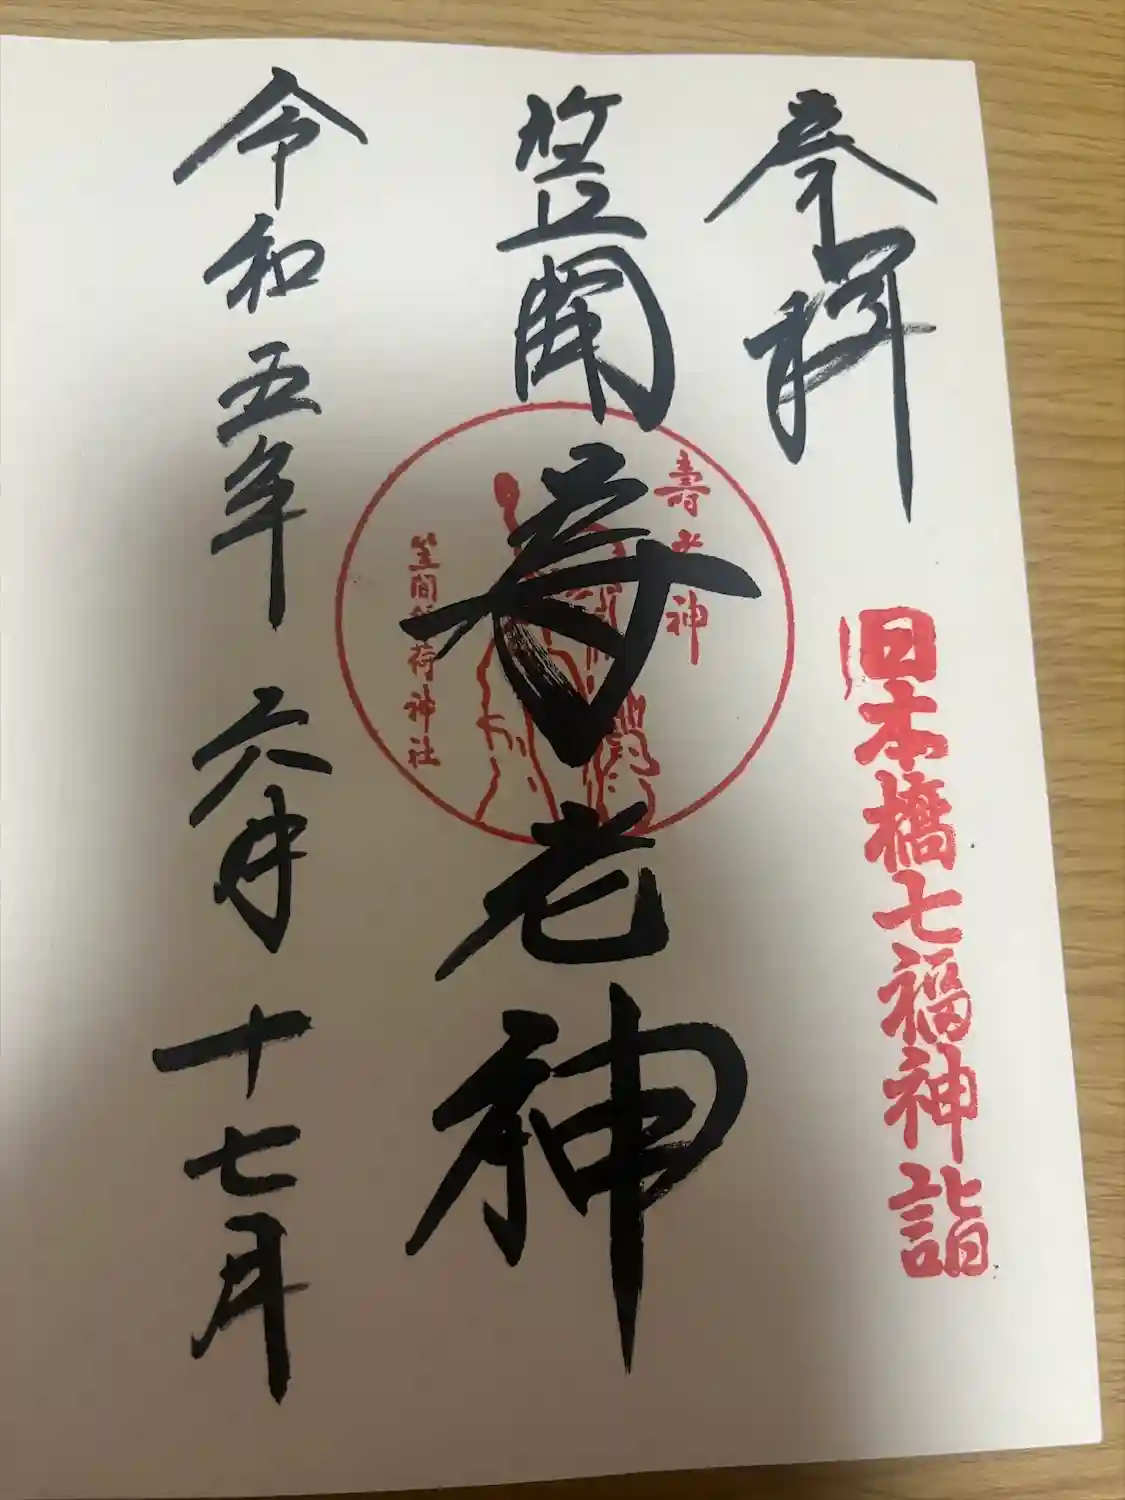 奉拝
日本橋七福神詣
笠間
寿老神
壽老神
笠間稲荷神社
令和五年 六月 十七日